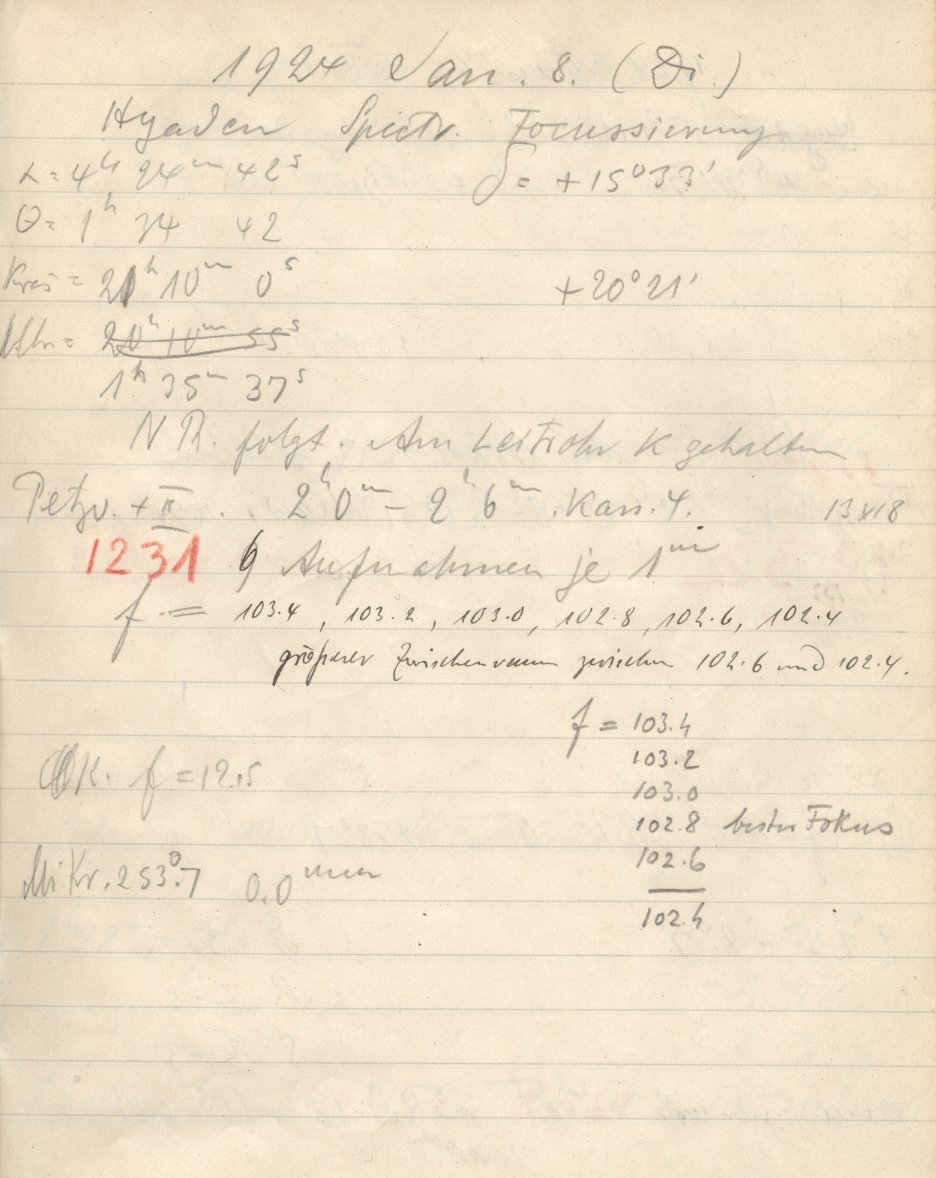 1924 Jan. 8. (Di.)
Hyaden Spectr. Focussierung
α = 4h 24m 42s δ = +15°33'
Θ = 1h 34 42
Kreis = 21h 10m 0s +20°21'
Uhr = 20h 10m 55s
1h 35m 37s
N R. folgt. Am Leitrohr K gehalten
Petzv. + II. 2h 0m – 2h 6m. Kass. 4. 13x18
1231 6 Aufnahmen je 1m
f = 103.4, 103.2, 103.0, 102.8, 102.6, 102.4
größerer Zwischenraum zwischen 102.6 und 102.4.
f = 103.4
103.2
OK. f = 12.5
103.0
102.8 bester Fokus
102.6
Mikr. 253°.7 0.0mm
102.4